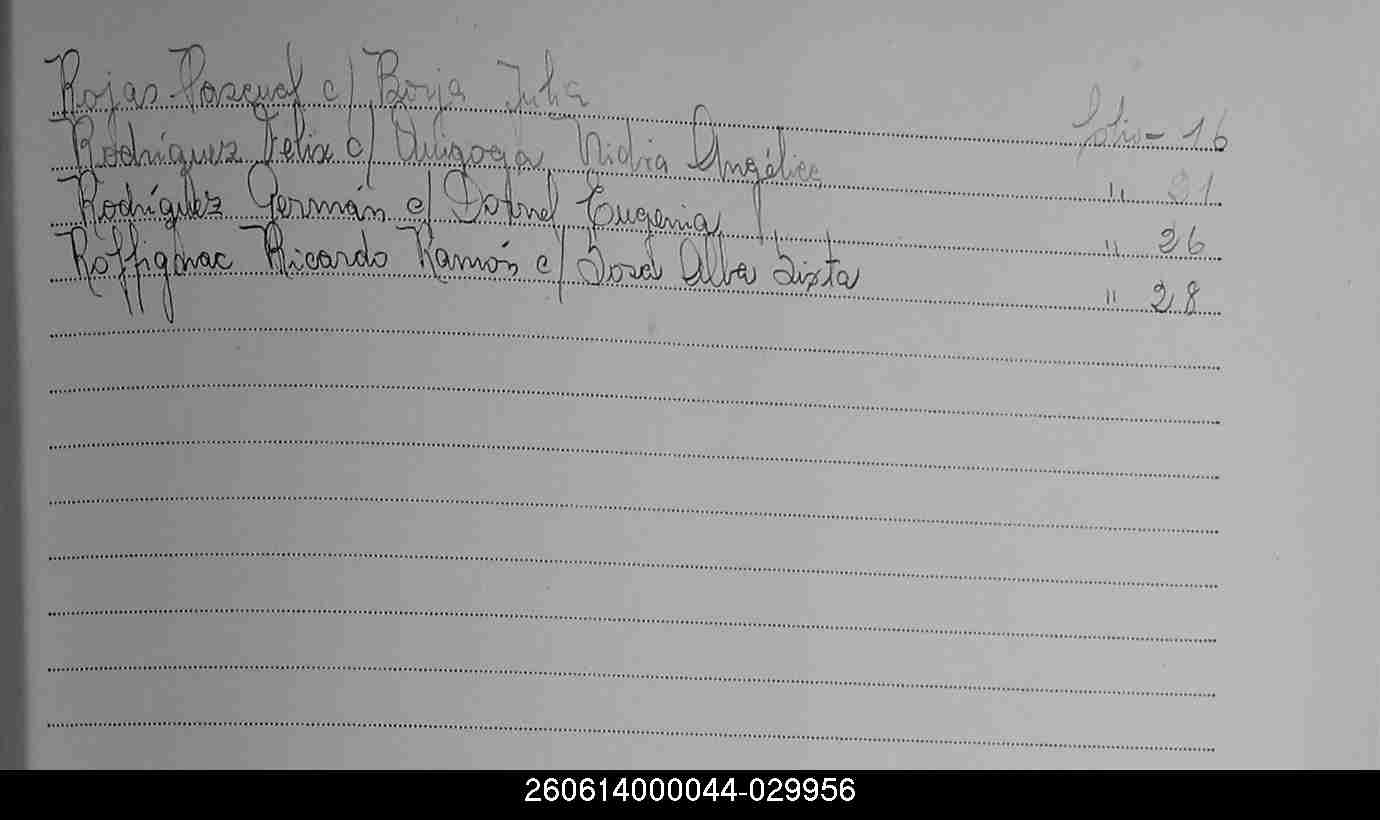 Rojas Pascual c/ Borja Julia folio - 16
Rodríguez Felix c/ Quiroga Nidia Angélica " 21
Rodríguez Germán c/ Eugenia " 26
Roffignac Ricardo Ramón c/ Sosa Alba Sixta " 28
260614000044-029956